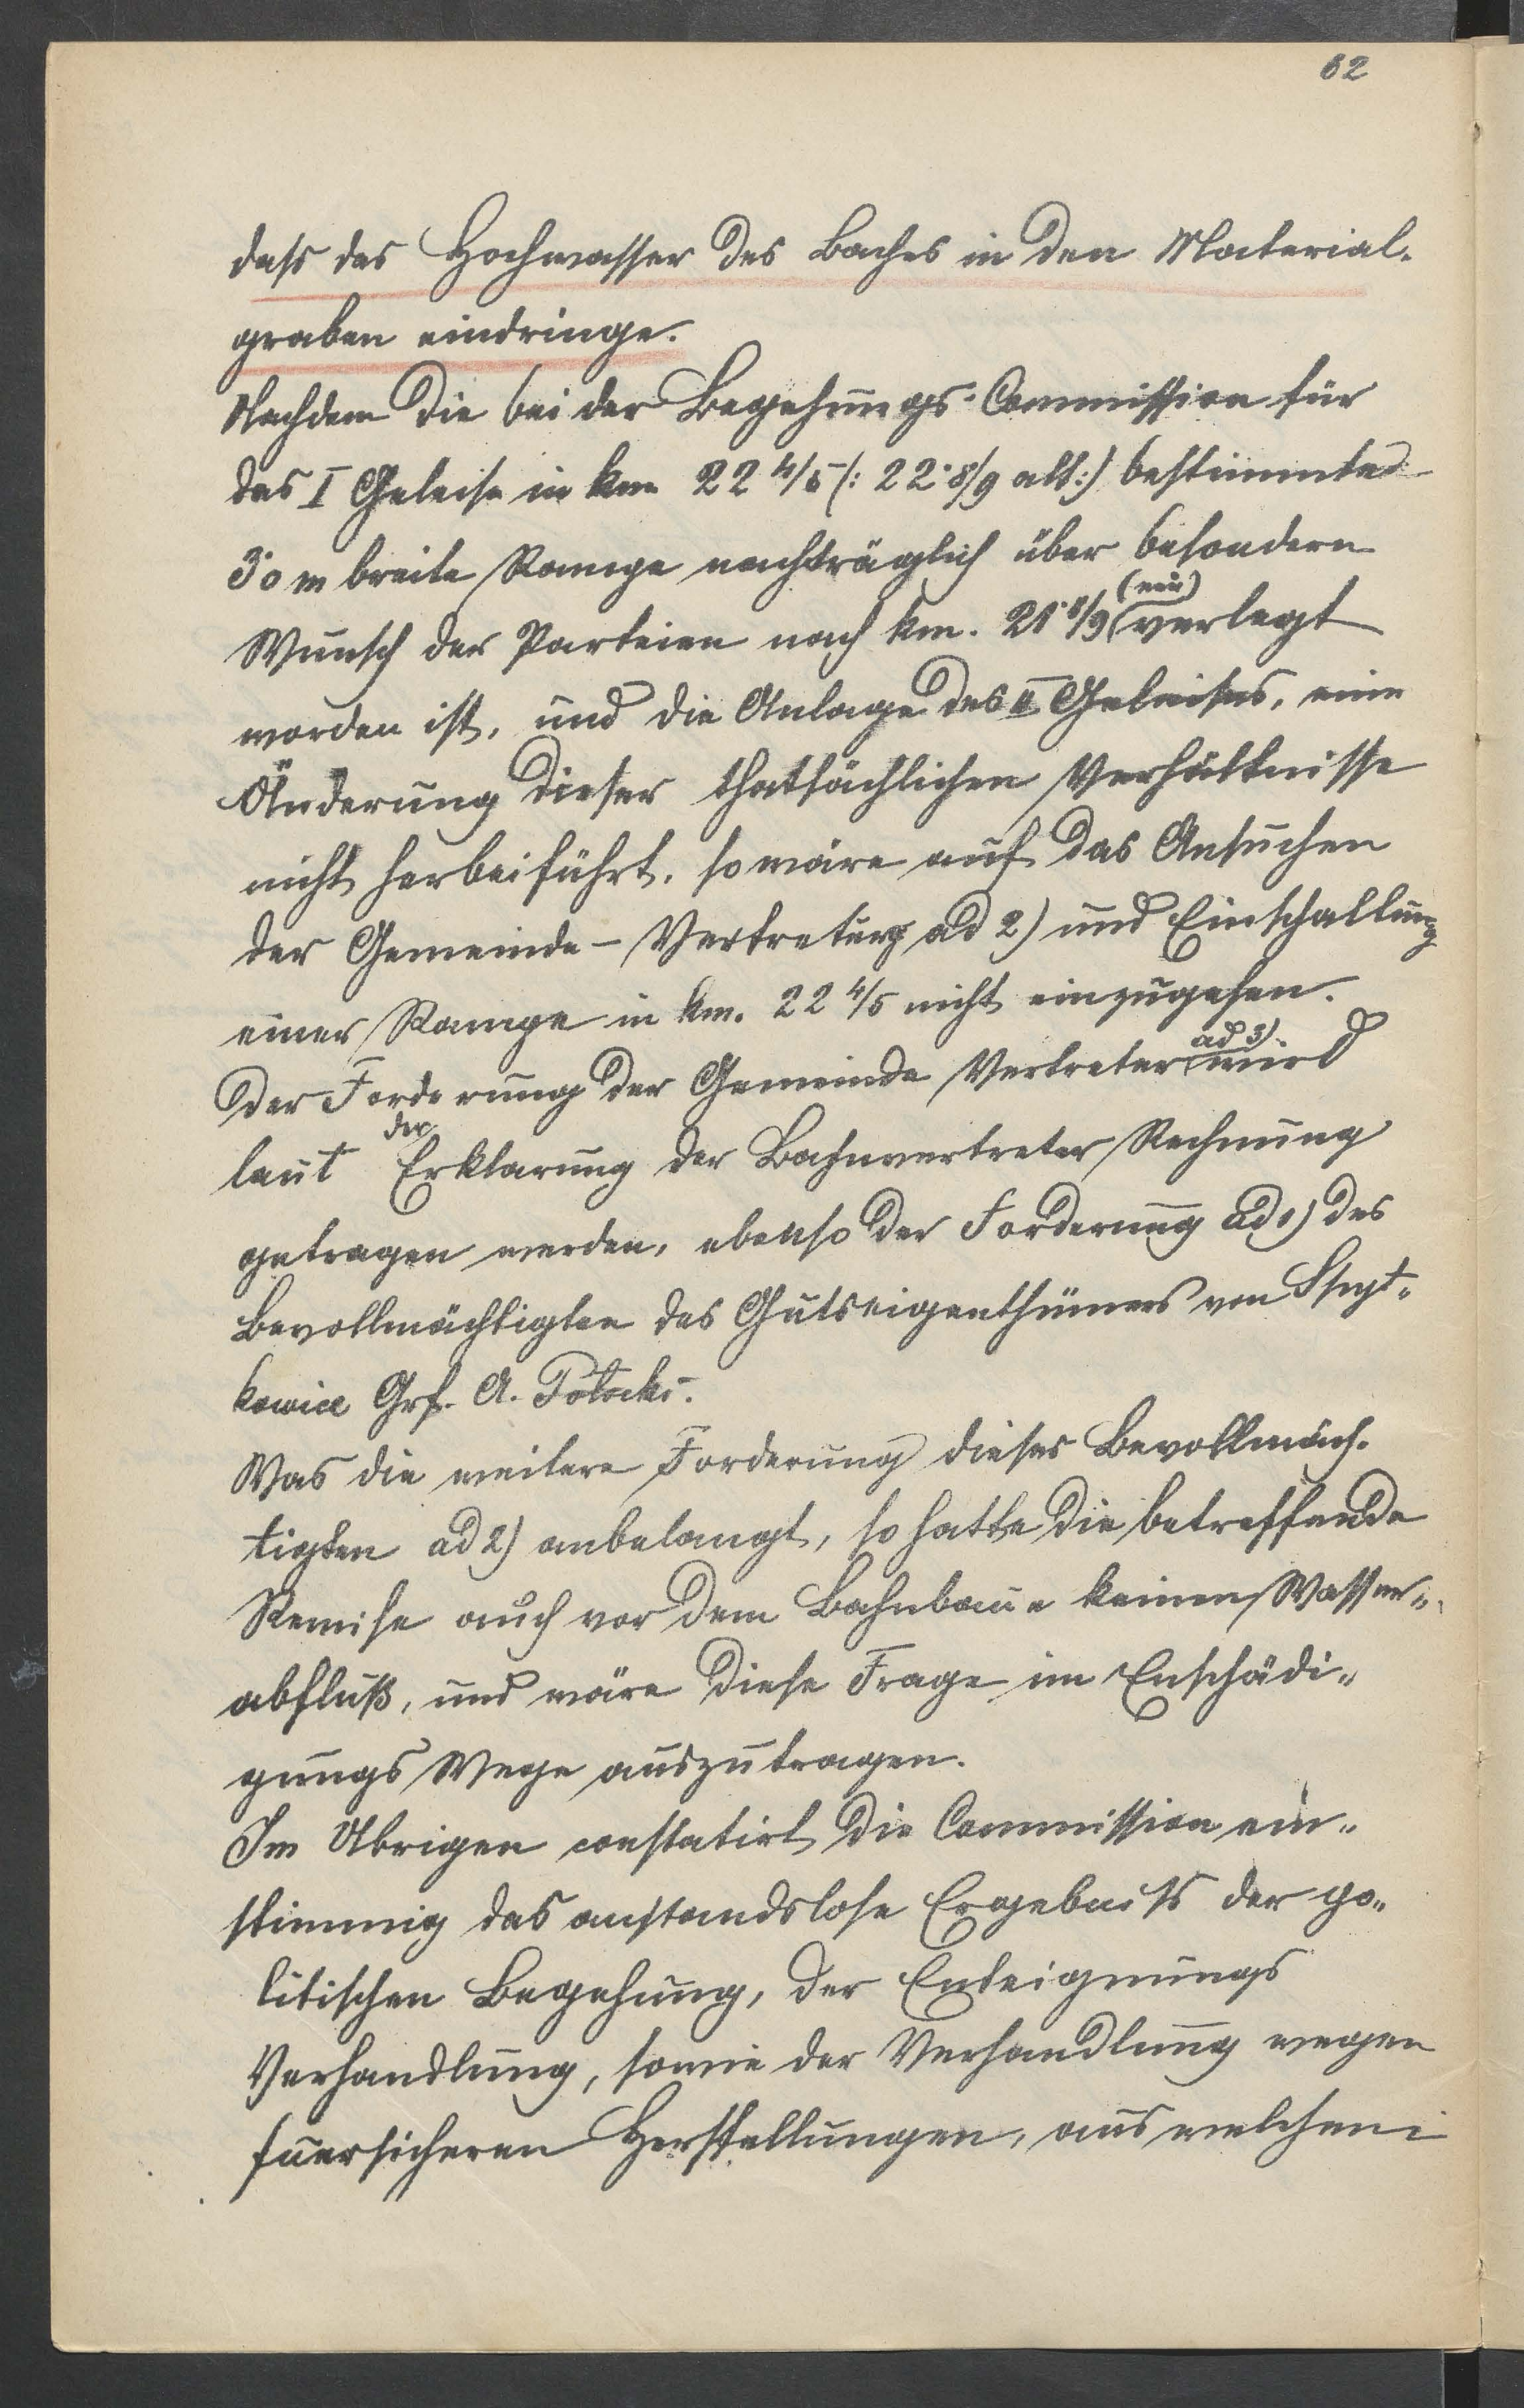 62
dass das Hochwasser des Baches in den Material-
graben eindringe.
Nachdem die bei der Begehungs-Commission für
das I Geleise in km 22 4/5 (: 22·8/9 alt :) bestimmte
3·0 m breite Rampe nachträglich über besondern
Wunsch der Parteien nach km. 21·8/9 (neu) verlegt
worden ist, und die Anlage des II Geleises, eine
Änderung dieser thatsächlichen Verhältnisse
nicht herbeiführt, so wäre auf das Ansuchen
der Gemeinde-Vertretung ad 2) und Einschaltung
einer Rampe in km. 22 4/5 nicht einzugehen.
Der Forderung der Gemeinde Vertreter ad 3) wird
laut der Erklarung der Bahnvertreter Rechnung
getragen werden, ebenso der Forderung ad 1) des
Bevollmächtigten des Gutseigenthümers von
kowice Grf. A. Potocki.
Was die weitere Forderung dieses Bevollmäch-
tigten ad 2) anbelangt, so hatte die betreffende
Remise auch vor dem Bahnbaue keinen Wasser-
abfluß, und wäre diese Frage im Enschädi-
gungs Wege auszutragen.
Im Übrigen constatirt die Commission ein-
stimmig das anstandslose Ergebniss der po-
litischen Begehung, der Enteignungs
Verhandlung, sowie der Verhandlung wegen
fuersicheren Herstellungen, aus welchem